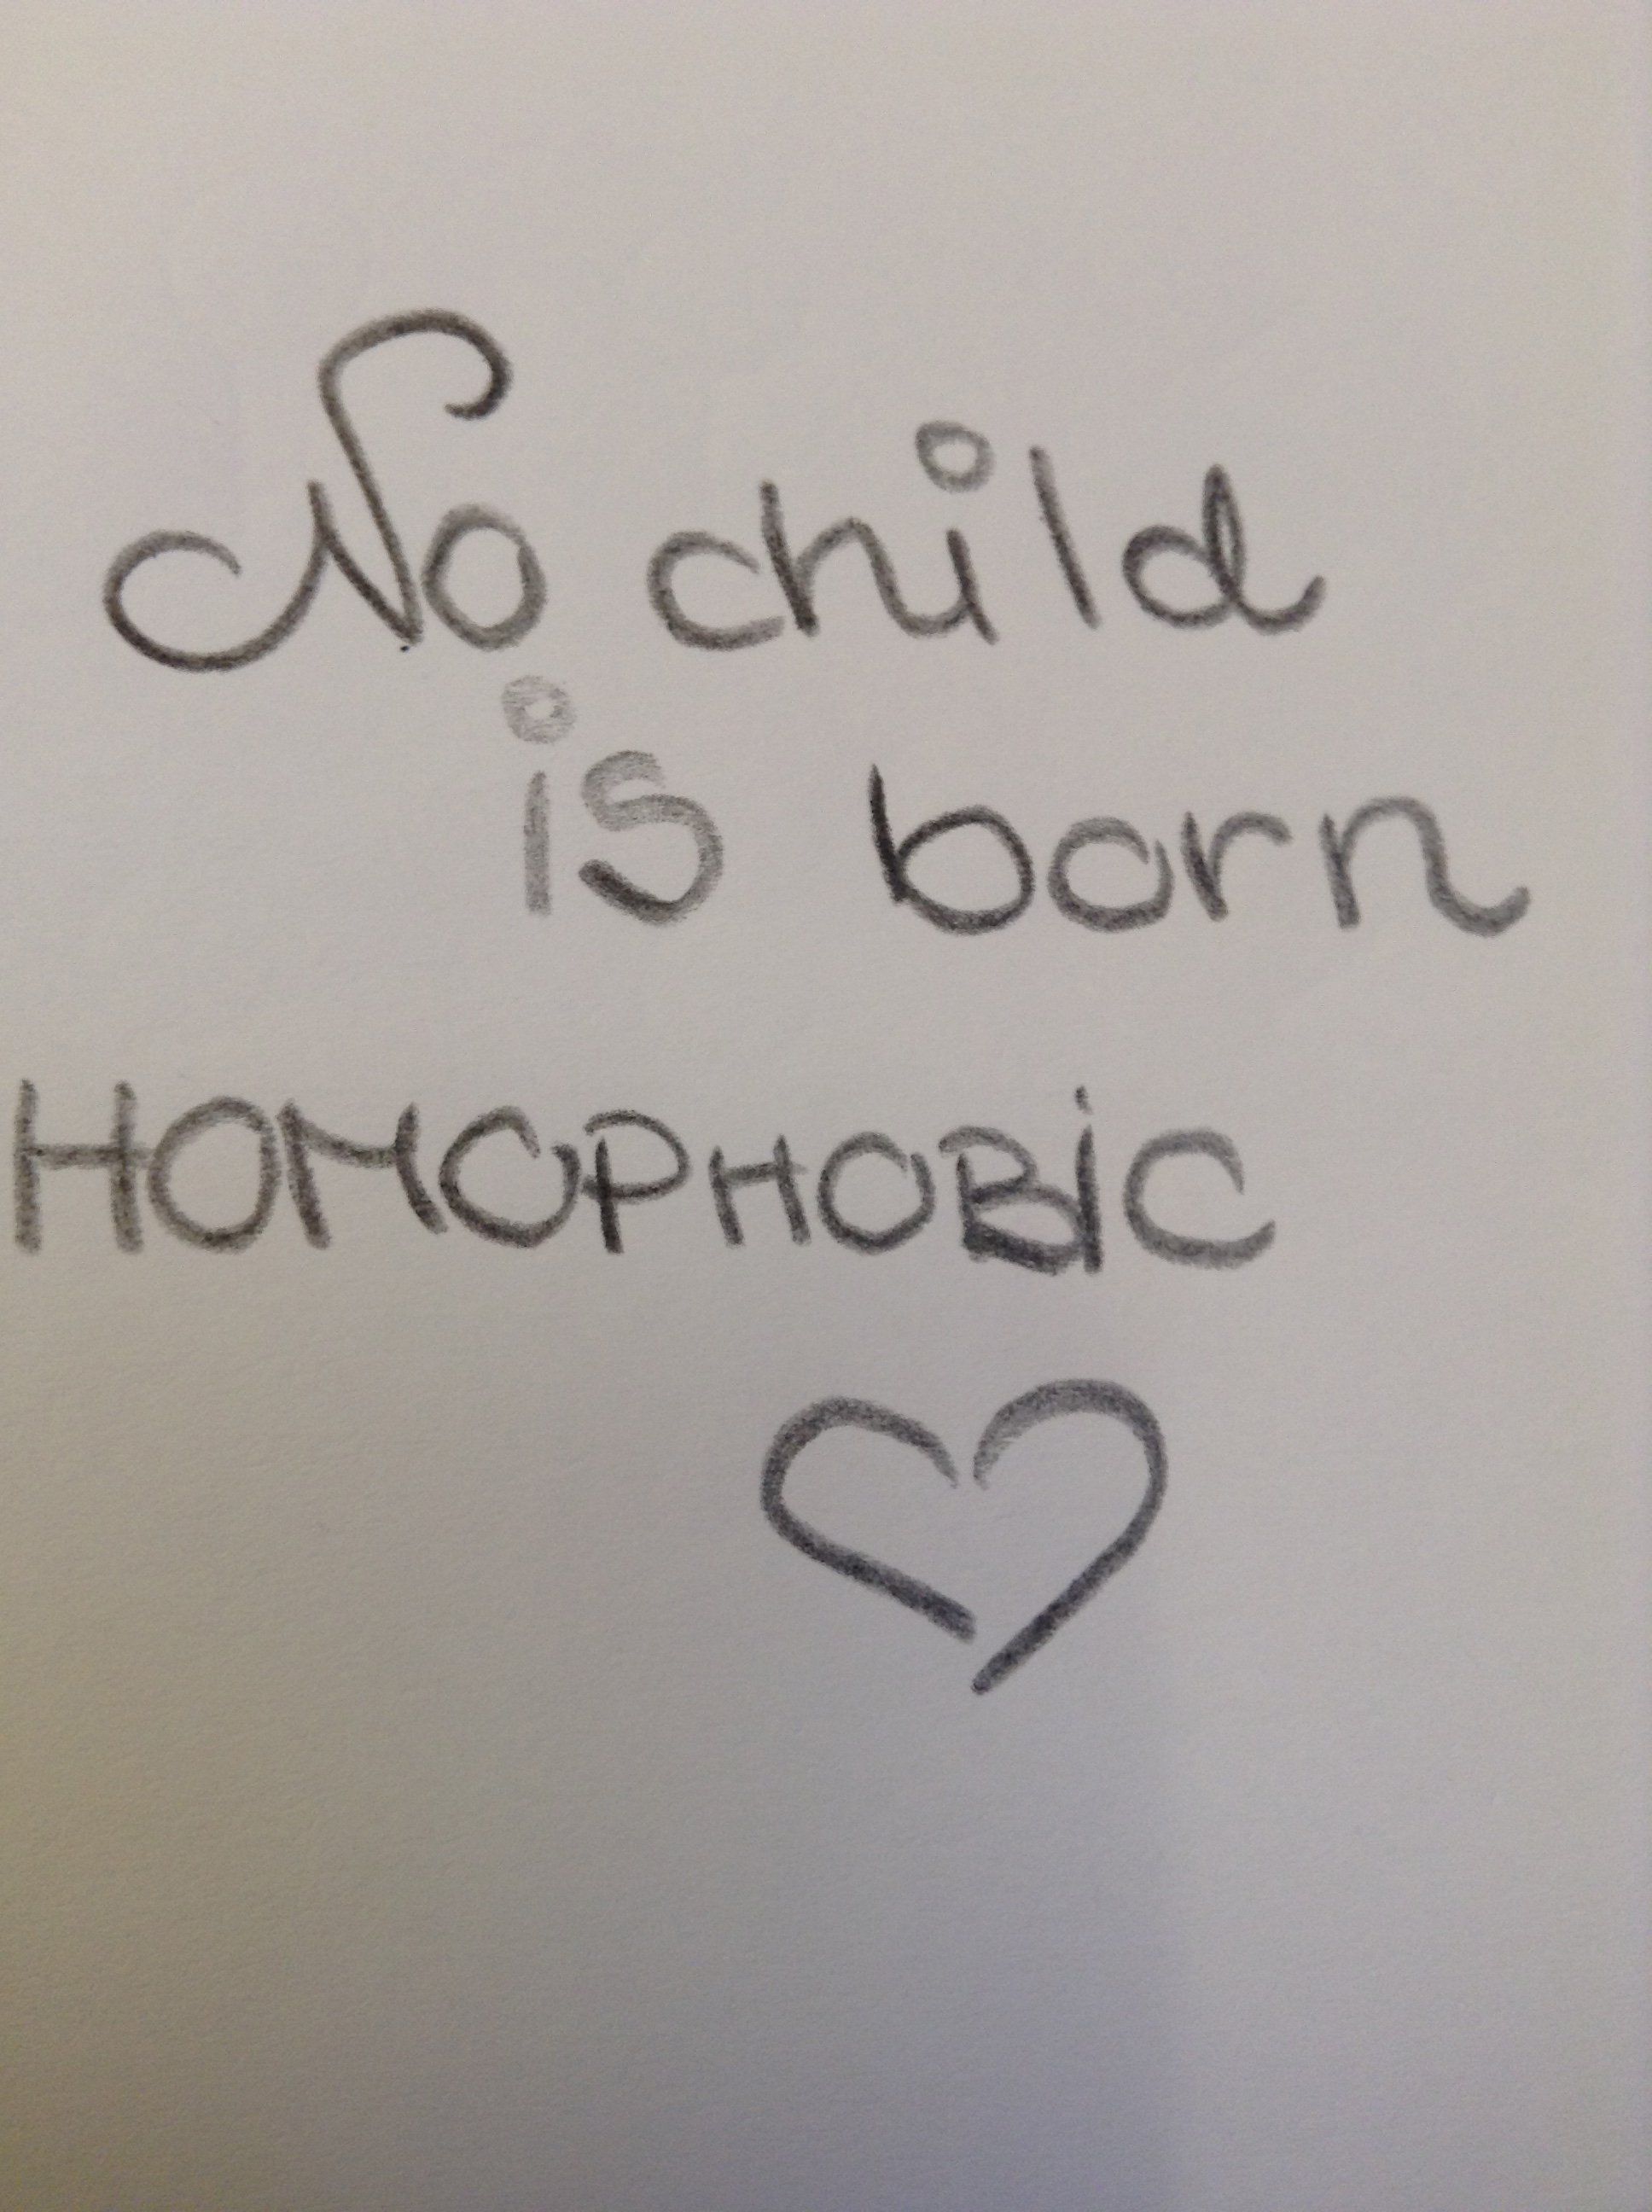 No child
is born
HOMOPHOBiC